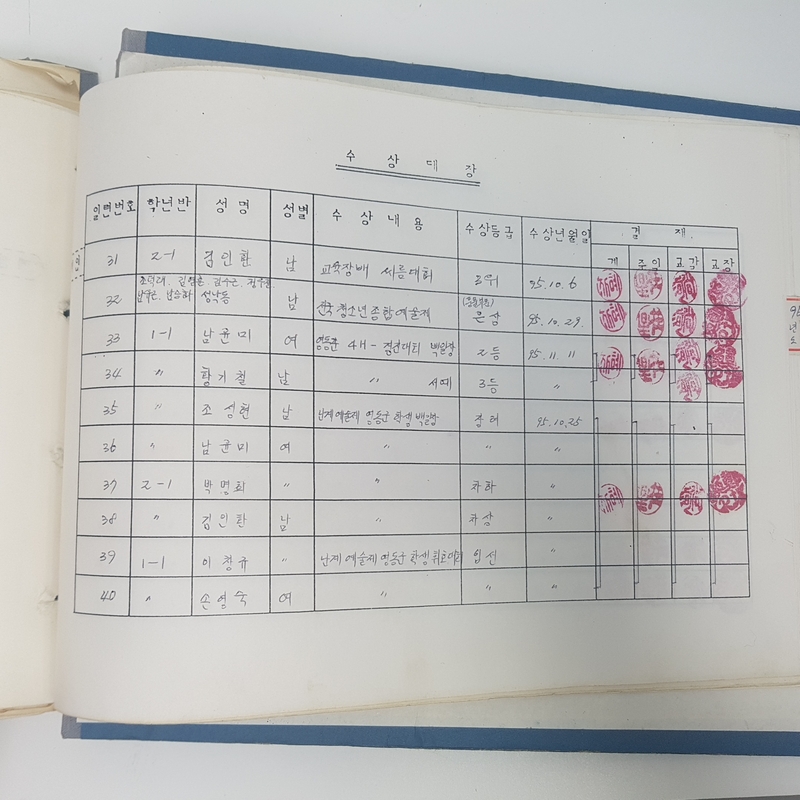 수 상 대 장
일련번호 학년반 성 명 성별 수 상 내 용 수상등급 수상년월일 결 재
계 주임 교감 교장
31 2-1 김인환 남 교육장배 씨름대회 3위 95.10.6
32 성낙동 남 전국 청소년 종합예술제 은상 95.10.29.
33 1-1 남윤미 여 영동군 4H-경진대회 백일장 2등 95.11.11
34 〃 황기철 남 〃 서예 3등 〃
35 〃 조성현 남 난계예술제 영동군 학생백일장 장려 95.10.25
36 〃 남윤미 여 〃 〃
37 2-1 박명희 〃 〃 차하 〃
38 〃 김인환 남 〃 차상 〃
39 1-1 이창규 〃 난계예술제 영동군 학생 입선 〃
40 〃 손영숙 여 〃 〃 〃